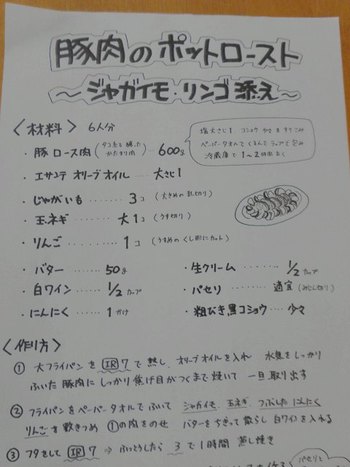 豚肉のポットロースト
～ジャガイモ・リンゴ添え～
〈材料〉 6人分
・豚ロース肉 600g
塩大さじ1 コショウ 少々 をすりこみ
ペーパータオルでくるんで ラップで包み
冷蔵庫で1～2時間おく
・エサンテ オリーブオイル 大さじ1
・じゃがいも 3コ (大きめの乱切り)
・玉ネギ 大1コ (うす切り)
・りんご 1コ (うすめのくし形にカット)
・バター 50g
・白ワイン 1/2カップ
・にんにく 1かけ
・生クリーム 1/2カップ
・パセリ 適宜 (みじん切り)
・粗びき黒コショウ 少々
〈作り方〉
① 大フライパンを IR 7 で熱し、オリーブオイルを入れ 水気をしっかり
ふいた豚肉にしっかり焦げ目がつくまで焼いて 一旦取り出す
② フライパンをペーパータオルでふいて ジャガイモ、玉ネギ、つぶしたにんにく
りんごを敷きつめ ①の肉をのせ バターをちぎって散らし 白ワインを入れる
③ フタをして IR 7 ⇒ ふっとうしたら 3 で1時間 蒸し焼き
パセリと